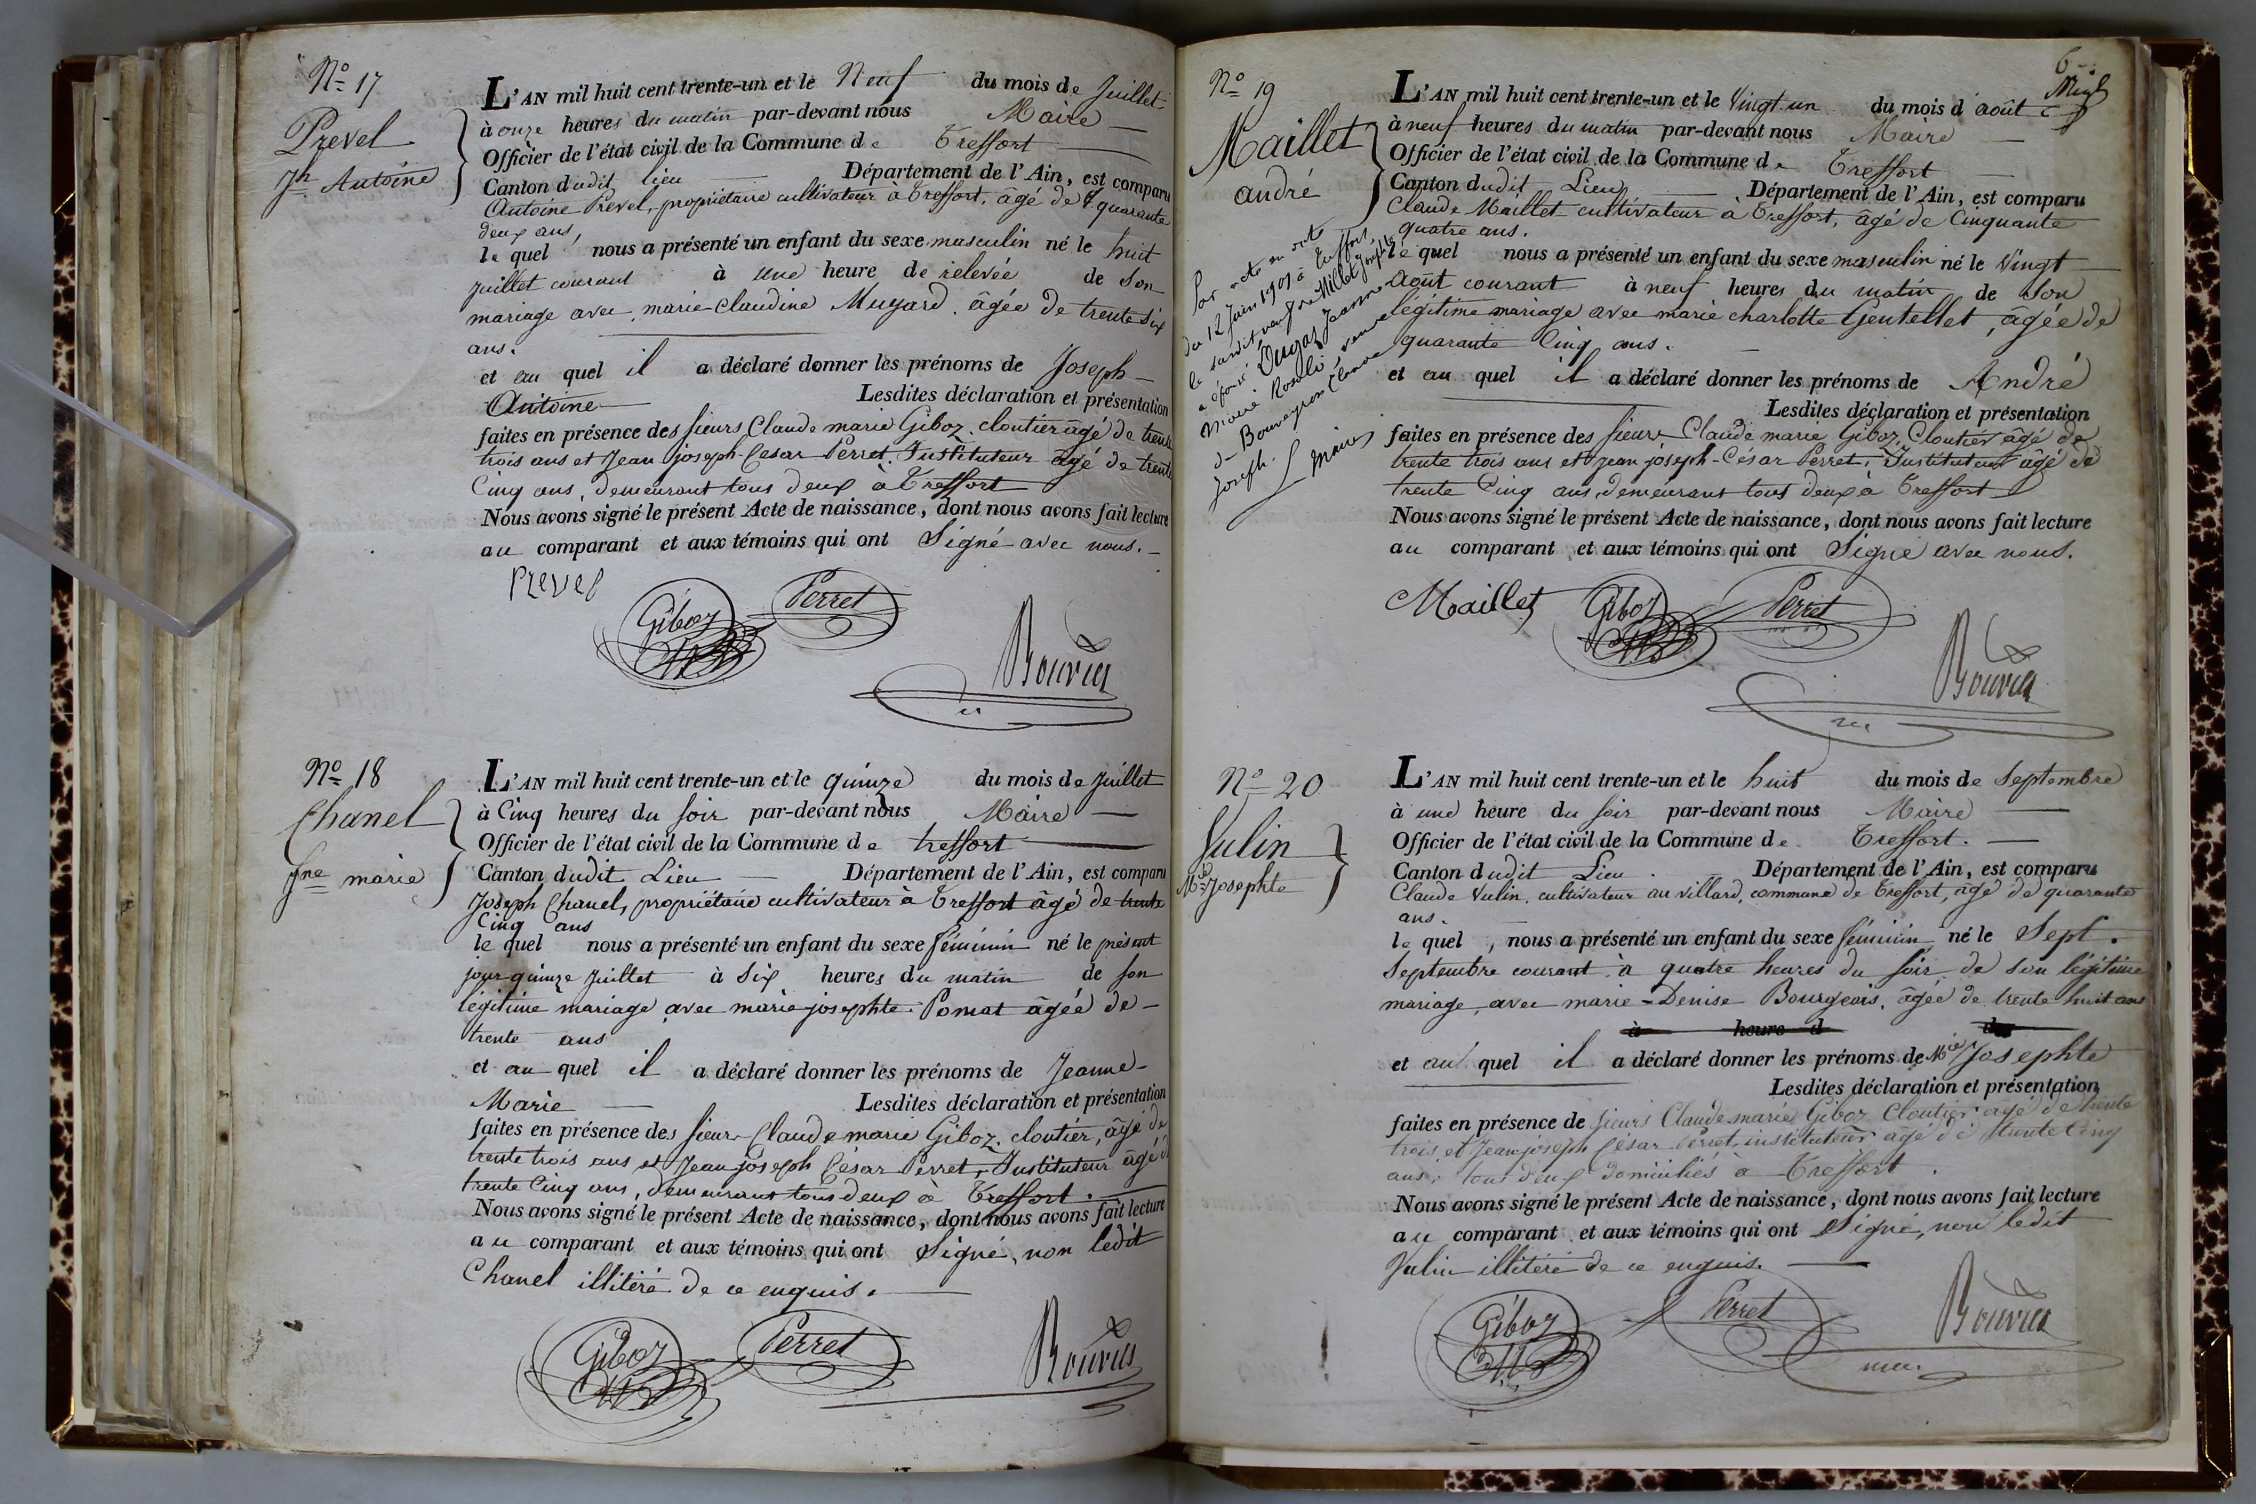 No 17
Prevel
Jh Antoine
L'AN mil huit cent trente-un et le Neuf du mois de Juillet
à onze heures du matin par-devant nous Maire
Officier de l'état civil de la Commune de Treffort
Canton dudit lieu Département de l'Ain, est comparu
Antoine Prevel, propriétaire cultivateur à Treffort, âgé de quarante
deux ans,
le quel nous a présenté un enfant du sexe masculin né le huit
juillet courant à une heure de relevée de son
mariage avec marie-Claudine Mugard, âgée de trente six
ans.
et au quel il a déclaré donner les prénoms de Joseph-
Antoine Lesdites déclaration et présentation
faites en présence des sieurs Claude marie Giboz, cloutier âgé de trente
trois ans et Jean joseph-Cesar Perret, Instituteur âgé de trente
Cinq ans, demeurant tous deux à Treffort
Nous avons signé le présent Acte de naissance, dont nous avons fait lecture
au comparant et aux témoins qui ont Signé avec nous.
Prevel
Giboz
Perret
Bouvier
No 18
Chanel
Jne marie
L'AN mil huit cent trente-un et le quinze du mois de juillet
à Cinq heures du soir par-devant nous Maire
Officier de l'état civil de la Commune de treffort
Canton dudit Lieu Département de l'Ain, est comparu
Joseph Chanel, propriétaire cultivateur à Treffort âgé de trente
Cinq ans
le quel nous a présenté un enfant du sexe féminin né le présent
jour quinze juillet à Six heures du matin de son
légitime mariage avec marie josephte Pomat âgée de
trente ans
et au quel il a déclaré donner les prénoms de Jeanne-
Marie Lesdites déclaration et présentation
faites en présence des sieurs Claude marie Giboz, cloutier, âgé de
trente trois ans et Jean joseph César Perret, Instituteur âgé d
trente Cinq ans, demeurant tous deux à Treffort.
Nous avons signé le présent Acte de naissance, dont nous avons fait lecture
au comparant et aux témoins qui ont Signé, non ledit
Chanel illitéré de ce enquis.
Giboz
Perret
Bouvier
6
No 19
Maillet
andré
Par acte en date
du 12 Juin 1901 à Treffort,
le susdit veuf de Millet Josephte
a épousé Dugas Jeanne
Marie Rosalie veuve
de Bouveyron Claude
Joseph. Maire
L'AN mil huit cent trente-un et le Vingt un du mois d'août
à neuf heures du matin par-devant nous Maire
Officier de l'état civil de la Commune de Treffort
Canton dudit Lieu Département de l'Ain, est comparu
Claude Maillet cultivateur à Treffort, âgé de Cinquante
quatre ans.
le quel nous a présenté un enfant du sexe masculin né le Vingt
Août courant à neuf heures du matin de son
légitime mariage avec marie charlotte Gentellet, âgée de
quarante Cinq ans.
et au quel il a déclaré donner les prénoms de André
Lesdites déclaration et présentation
faites en présence des sieurs Claude marie Giboz, Cloutier âgé de
trente trois ans et jean joseph-César Perret, Instituteur âgé de
trente Cinq ans, demeurant tous deux à Treffort
Nous avons signé le présent Acte de naissance, dont nous avons fait lecture
au comparant et aux témoins qui ont Signé avec nous.
Maillet
Giboz
Perret
Bouvier
No 20
Vulin
Mie Josephte
L'AN mil huit cent trente-un et le huit du mois de Septembre
à une heure du soir par-devant nous Maire
Officier de l'état civil de la Commune de Treffort.
Canton dudit Lieu. Département de l'Ain, est comparu
Claude Vulin, cultivateur au villard, commune de Treffort, âgé de quarante
ans.
le quel, nous a présenté un enfant du sexe féminin né le Sept.
Septembre courant à quatre heures du soir de son légitime
mariage avec marie-Denise Bourgeois, âgée de trente huit ans
à heure d de
et au quel il a déclaré donner les prénoms de Mie Josephte
Lesdites déclaration et présentation
faites en présence de sieurs Claude marie Giboz Cloutier âgé de trente
trois et Jean joseph César Perret, instituteur âgé de trente Cinq
ans, tous deux domiciliés à Treffort.
Nous avons signé le présent Acte de naissance, dont nous avons fait lecture
au comparant et aux témoins qui ont Signé, non ledit
Vulin illitéré de ce enquis.
Giboz
Perret
Bouvier